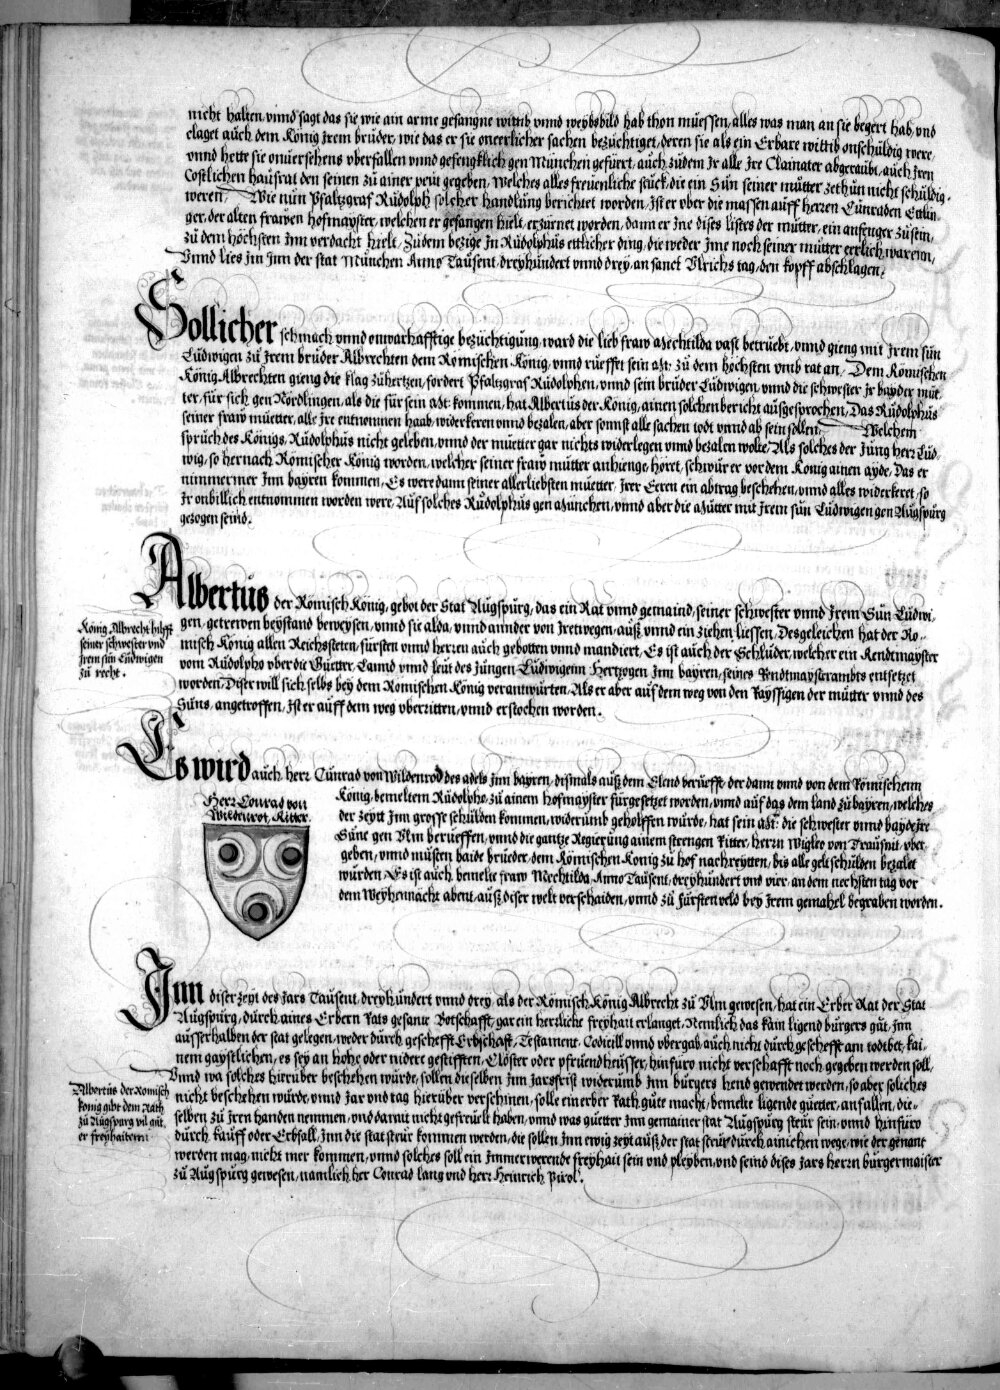 nicht halten, vnnd sagt das sie wie ain arme gefangne wittib vnnd weybsbild hab thon müessen, alles was man an sie begert hab, vnd
claget auch dem König Jrem brüder, wie das er sie oneerlicher sachen bezüchtiget, deren sie als ein Erbare wittib onschüldig were,
vnnd hette sie onuersehens vberfallen vnnd gefengklich gen München gefüert, auch züdem Jr alle Jre Clainater abgeraubt, auch Jren
Costlichen haüsrat den seinen zü ainer peüt gegeben, welches alles freuenliche stück, die ein Sün seiner mütter zethün nicht schüldig
weren, Wie nün Pfaltzgraf Rüdolph solcher handlüng berichtet worden, Jst er vber die massen aüff herren Cünraden Ettlin
ger, der alten frawen hofmayster, welchen er gefangen hielt, erzürnet worden, dann er Jne dises listes der mütter, ein anfenger züsein,
zü dem höchsten Jnn verdacht hielt, Züdem bezige Jn Rüdolphüs ettlicher ding, die weder Jme noch seiner mütter eerlich warenn,
Vnnd lies Jm Jnn der stat München Anno Taüsent, dreyhündert vnnd drey, an sanct Vlrichs tag, den kopff abschlagen.
Sollicher schmach vnnd onwarhafftige bezüchtigüng, ward die lieb fraw Mechtilda vast betrüebt, vnnd gieng mit Jrem sün
Lüdwigen zü Jrem brüder Albrechten dem Römischen König, vnnd rüeffet sein Mt: zü dem höchsten vmb rat an, Dem Römischen
König Albrechten gieng die klag zühertzen, fordert Pfaltzgraf Rüdolphen, vnnd sein brüder Lüdwigen, vnnd die schwester Jr bayder müt
ter, für sich gen Nördlingen, als die für sein Mt: kommen, hat Albertüs der König, ainen solchen bericht aüsgesprochen, Das Rüdolphüs
seiner fraw müetter, alle Jre entnommen haab, widerkeren vnnd bezalen, aber sonnst alle sachen todt vnnd ab sein sollen, Welchem
sprüch des Königs, Rüdolphüs nicht geleben, vnnd der müetter gar nichts widerlegen vnnd bezalen wolte, Als solches der Jüng herr Lüd
wig, so hernach Römischer König worden, welcher seiner fraw mütter anhienge, höret, schwür er vor dem König ainen ayde, Das er
nimmermer Jnn bayren kommen, Es were dann seiner allerliebsten müetter, Jrer Eeren ein abtrag beschehen, vnnd alles widerkeret, so
Jr onbillich entnommen worden were, Aüf solches Rüdolphüs gen München, vnnd aber die Mütter mit Jrem sün Lüdwigen gen Aügspürg
gezogen seind.
Albertüs der Römisch König, gebot der Stat Aügspürg, das ein Rat vnnd gemaind, seiner schwester vnnd Jrem Sün Lüdwi
gen, getrewen beystand beweysen, vnnd sie alda, vnnd annder von Jretwegen, aüß vnnd ein ziehen liessen, Desgeleichen hat der Rö-
misch König allen Reichsteten, fürsten vnnd herren aüch gebotten vnnd mandiert, Es ist aüch der Schlüder, welcher ein Rendtmayster
vom Rüdolpho vber die Güetter, Lannd vnnd leüt des Jüngen Lüdwigenn Hertzogen Jnn bayren, seines Rendtmaysterambts entsetzet
worden, Diser will sich selbs bey dem Römischen König verantwürten, Als er aber aüf dem weg von den Rayssigen der mütter vnnd des
Süns, angetroffen, Jst er aüff dem weg vberritten, vnnd erstochen worden.
König Albrecht hilfft
seiner schwester vnd
Jrem sün Lüdwigen
zü recht.
Es wird aüch herr Cünrad von Wildenrod des adels Jnn bayren, dismals aüß dem Elend berüefft, der dann vnnd von dem Römischenn
König, bemeltem Rüdolpho, zü ainem hofmayster fürgesetzet worden, vnnd aüf das dem land zü bayren, welches
der zeytt Jnn grosse schülden kommen, widerümb geholffen würde, hat sein Mt: die schwester vnnd bayde Jre
Süne gen Vlm berüeffen, vnnd die gantze Regierüng ainem strengen Ritter, herrn wigleo von Traüsnit, vber-
geben, vnnd müsten baide brüeder, dem Römischen König zü hof nachreytten, bis alle geltschülden bezalet
würden, Es ist aüch bemelte fraw Mechtilda Anno Taüsent, dreyhündert vnd vier, an dem nechsten tag vor
dem Weyhennächt abent, aüß diser welt verschaiden, vnnd zü fürstenveld bey Jrem gemahel begraben worden.
Herr Conrad von
Wildenrot, Ritter.
Jnn diser zeyt des Jars Taüsent, dreyhündert vnnd drey, als der Römisch König Albrecht zü Vlm gewesen, hat ein Erber Rat der Stat
Aügspürg, dürch aines Erbern Rats gesante Botschafft, gar ein herrliche freyhait erlanget, Nemlich das kain ligend bürgers güt, Jnn
aüsserhalben der stat gelegen, weder dürch gescheftt Erbschaft, Testament, Codicill vnnd vbergab, aüch nicht dürch geschefft am todtbet, kai-
nem gaystlichen, es sey an hohe oder nidere gestifften, Clöster oder pfrüendheüsser, hinfüro nicht verschafft noch gegeben werden soll,
Vnnd wa solches hierüber beschehen würde, sollen dieselben Jnn Jarsfrist widerümb Jnn bürgers hend gewendet werden, so aber soliches
nicht beschehen würde, vnnd Jar vnd tag hierüber verschinen, solle ein erber Rath güte macht, bemelte ligende güetter, anfallen, die-
selben zü Jren handen nemmen, vnd darmit nicht gefreüelt haben, vnnd was güetter Jnn gemainer stat Aügspürg steür sein, vnnd hinfüro
dürch kaüff oder Erbfall, Jnn die stat steür kommen werden, die sollen Jnn ewig zeyt aüß der stat steür dürch ainichen wege, wie der genant
werden mag, nicht mer kommen, vnnd solches soll ein Jmmerwerende freyhait sein vnd pleyben, vnd seind dises Jars herrn bürgermaister
zü Aügspürg gewesen, namlich her Conrad lang vnd herr Heinrich Pirol.
Albertus der Römisch
König gibt dem Rath
zü Aügspürg vil güt
er freyhaitenn